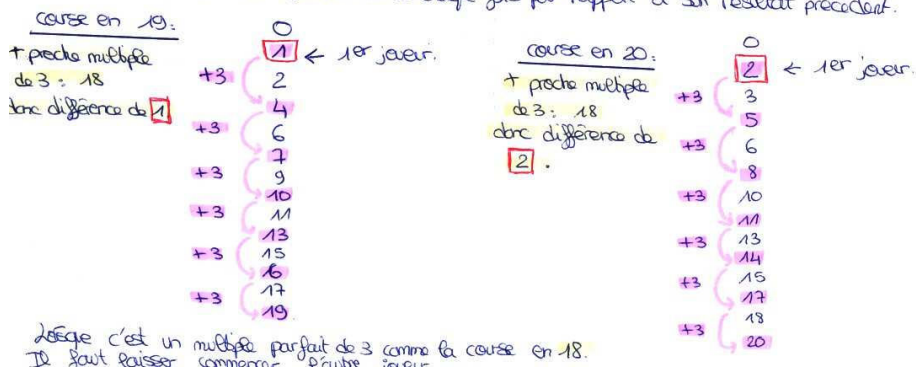 par rapport à son résultat précédent.
course en 19:
+ proche multiple
de 3: 18
donc différence de 1
0
1 ← 1er joueur.
+3
2
4
+3
6
7
+3
9
10
+3
11
13
+3
15
16
+3
17
19
course en 20:
+ proche multiple
de 3: 18
donc différence de
2.
0
2 ← 1er joueur.
+3
3
5
+3
6
8
+3
10
11
+3
13
14
+3
15
17
+3
18
20
Lorsque c'est un multiple parfait de 3 comme la course en 18.
Il faut laisser commencer l'autre joueur